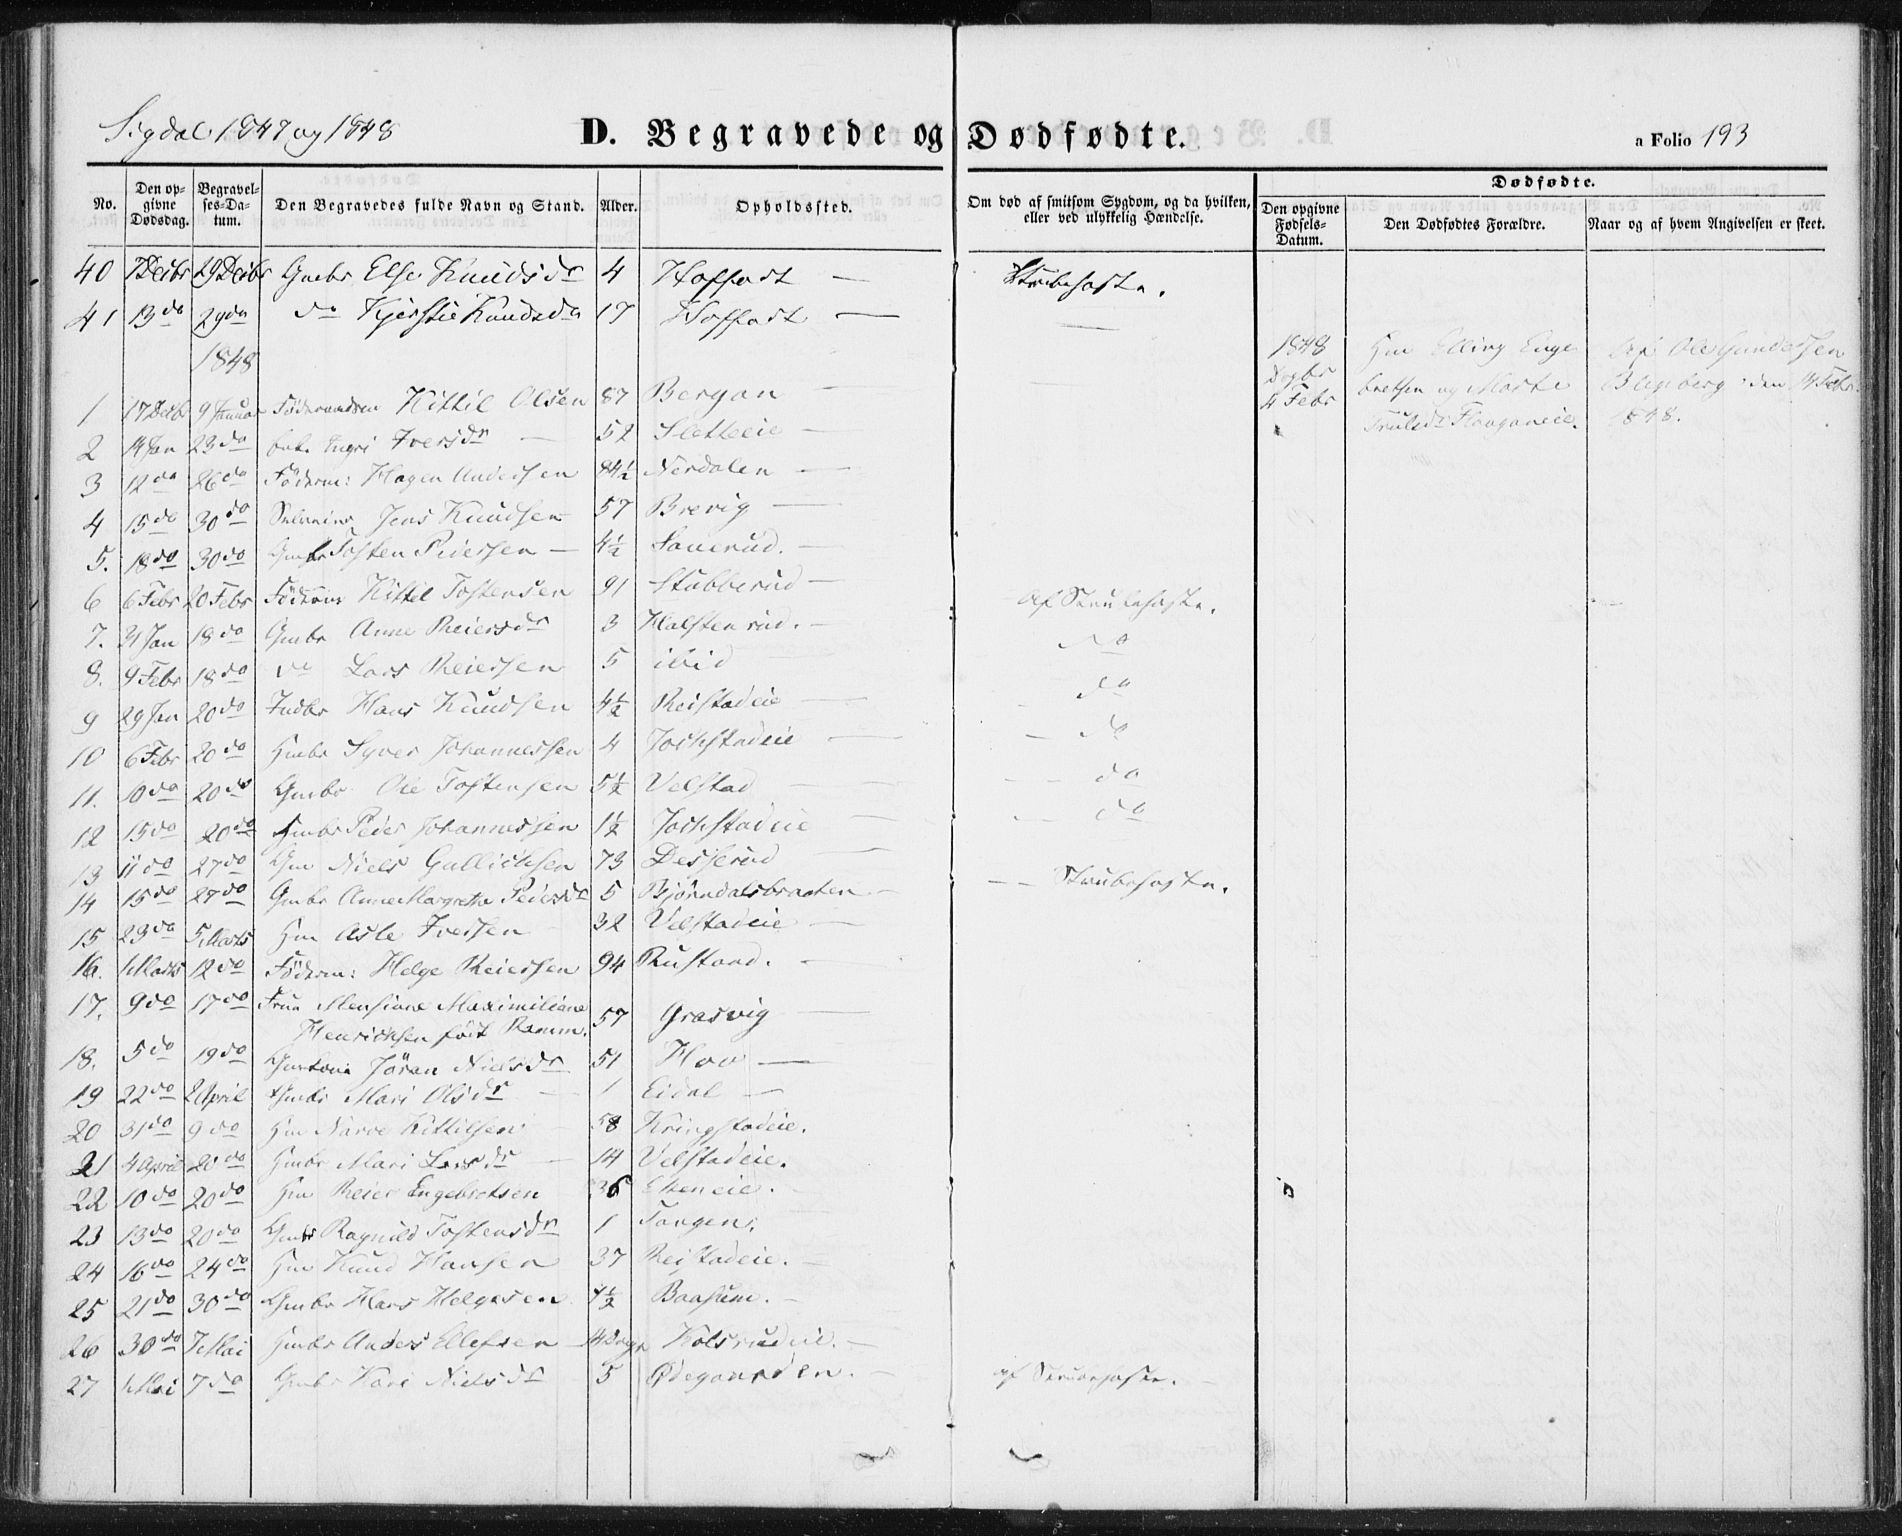 Sigdal 1847 og 1848
D. Begravede og Dødfødte.
a Folio 193
No.
Den opgivne Dødsdag.
Begravelses-Datum.
Den Begravedes fulde Navn og Stand.
Alder.
Opholdssted.
Om død af smitsom Sygdom, og da hvilken, eller ved ulykkelig Hændelse.
Dødfødte.
Den opgivne Fødsels-Datum.
Den Dødfødtes Forældre.
Naar og af hvem Angivelsen er skeet.
40 7 Decbr 29 Decbr Gmbr Else Knudsdr 4 Hoffart — Strubehoste.
41 13 do 29 do do Kjerstie Knudsdr 17 Hoffart —
1848
1 17 Decb 9 Januar Föderaadsm Kittil Olsen 87 Bergan —
2 14 Jan 23 do Ingri Iversdr — 52 Sletteeie —
3 12 do 26 do Föderm: Hagen Andersen 84½ Nerdalen —
4 15 do 30 do Jens Knudsen 57 Brevig —
5. 18 do 30 do Gmbr Tosten Peersen — 4½
6 6 Febr 20 Febr Kittel Tostensen 91 Stubberud — Af Strubehoste.
7. 31 Jan 18 do Gmbr Anne Reiersdr 3 Halstenrud. — do
8. 9 Febr 18 do do Lars Reiersen 5 ibid — do
9 29 Jan 20 do Indbr Hans Knudsen 4½ Reistadeie — do
10 6 Febr 20 do Hmbr Syver Johannessen 4 Jockstadeie — do
11. 10 do 20 do Gmbr Ole Tostensen 5½ Velstad — do
12 15 do 20 do Hmbr Peder Johannessen 1½ Jockstadeie
13 11 do 27 do Gm Niels Gullichsen 73 Desserud
14 15 do 27 do Gmbr Anne Margrethe Pedersdr 5 Bjørndalsbraaten — Strubehoste.
15 23 do 5 Marts Hm Asle Iversen 32 Velstadeie —
16. 1 Marts 12 do Föderm: Helge Reiersen 94 Rustand. —
17. 9 do 17 do Frue Mensione Maximiliane
Henrichsen født Ramm. 57 Græsvig —
18. 5 do 19 do Gmkone Jöran Nielsdr 51 Hov —
19 22 do 2 April Gmbr Mari Olsdr — 1 Eidal —
20 31 do 9 do Hm Narve Kittilsen 58 Kringstadeie.
21 4 April 20 do Hmbr Mari Larsdr — 14 Velstadeie.
22 10 do 20 do Hm Reier Engebretsen 36 Ekeneie. —
23 13 do 20 do Gmbr Ragnild Tostensdr 1 Tangen.
24 16 do 24 do Hm Knud Hansen 37 Reistadeie. —
25 21 do 30 do Gmbr Hans Helgesen 4½ Baashuus. —
26 30 do 7 Mai Hmbr Anders Ellefsen 14 Dage Kolsrudeie. —
27 1 Mai 7 do Gmbr Kari Nielsdr 5 Ødegaarden. — af Strubehoste.
1848
Dogbr
4 Febr
Hm Elling Enge
bretsen og Marte
Trulsdr Hougneie.
Af Ole Gundersen
Blegeberg den 14 Febr.
1848.